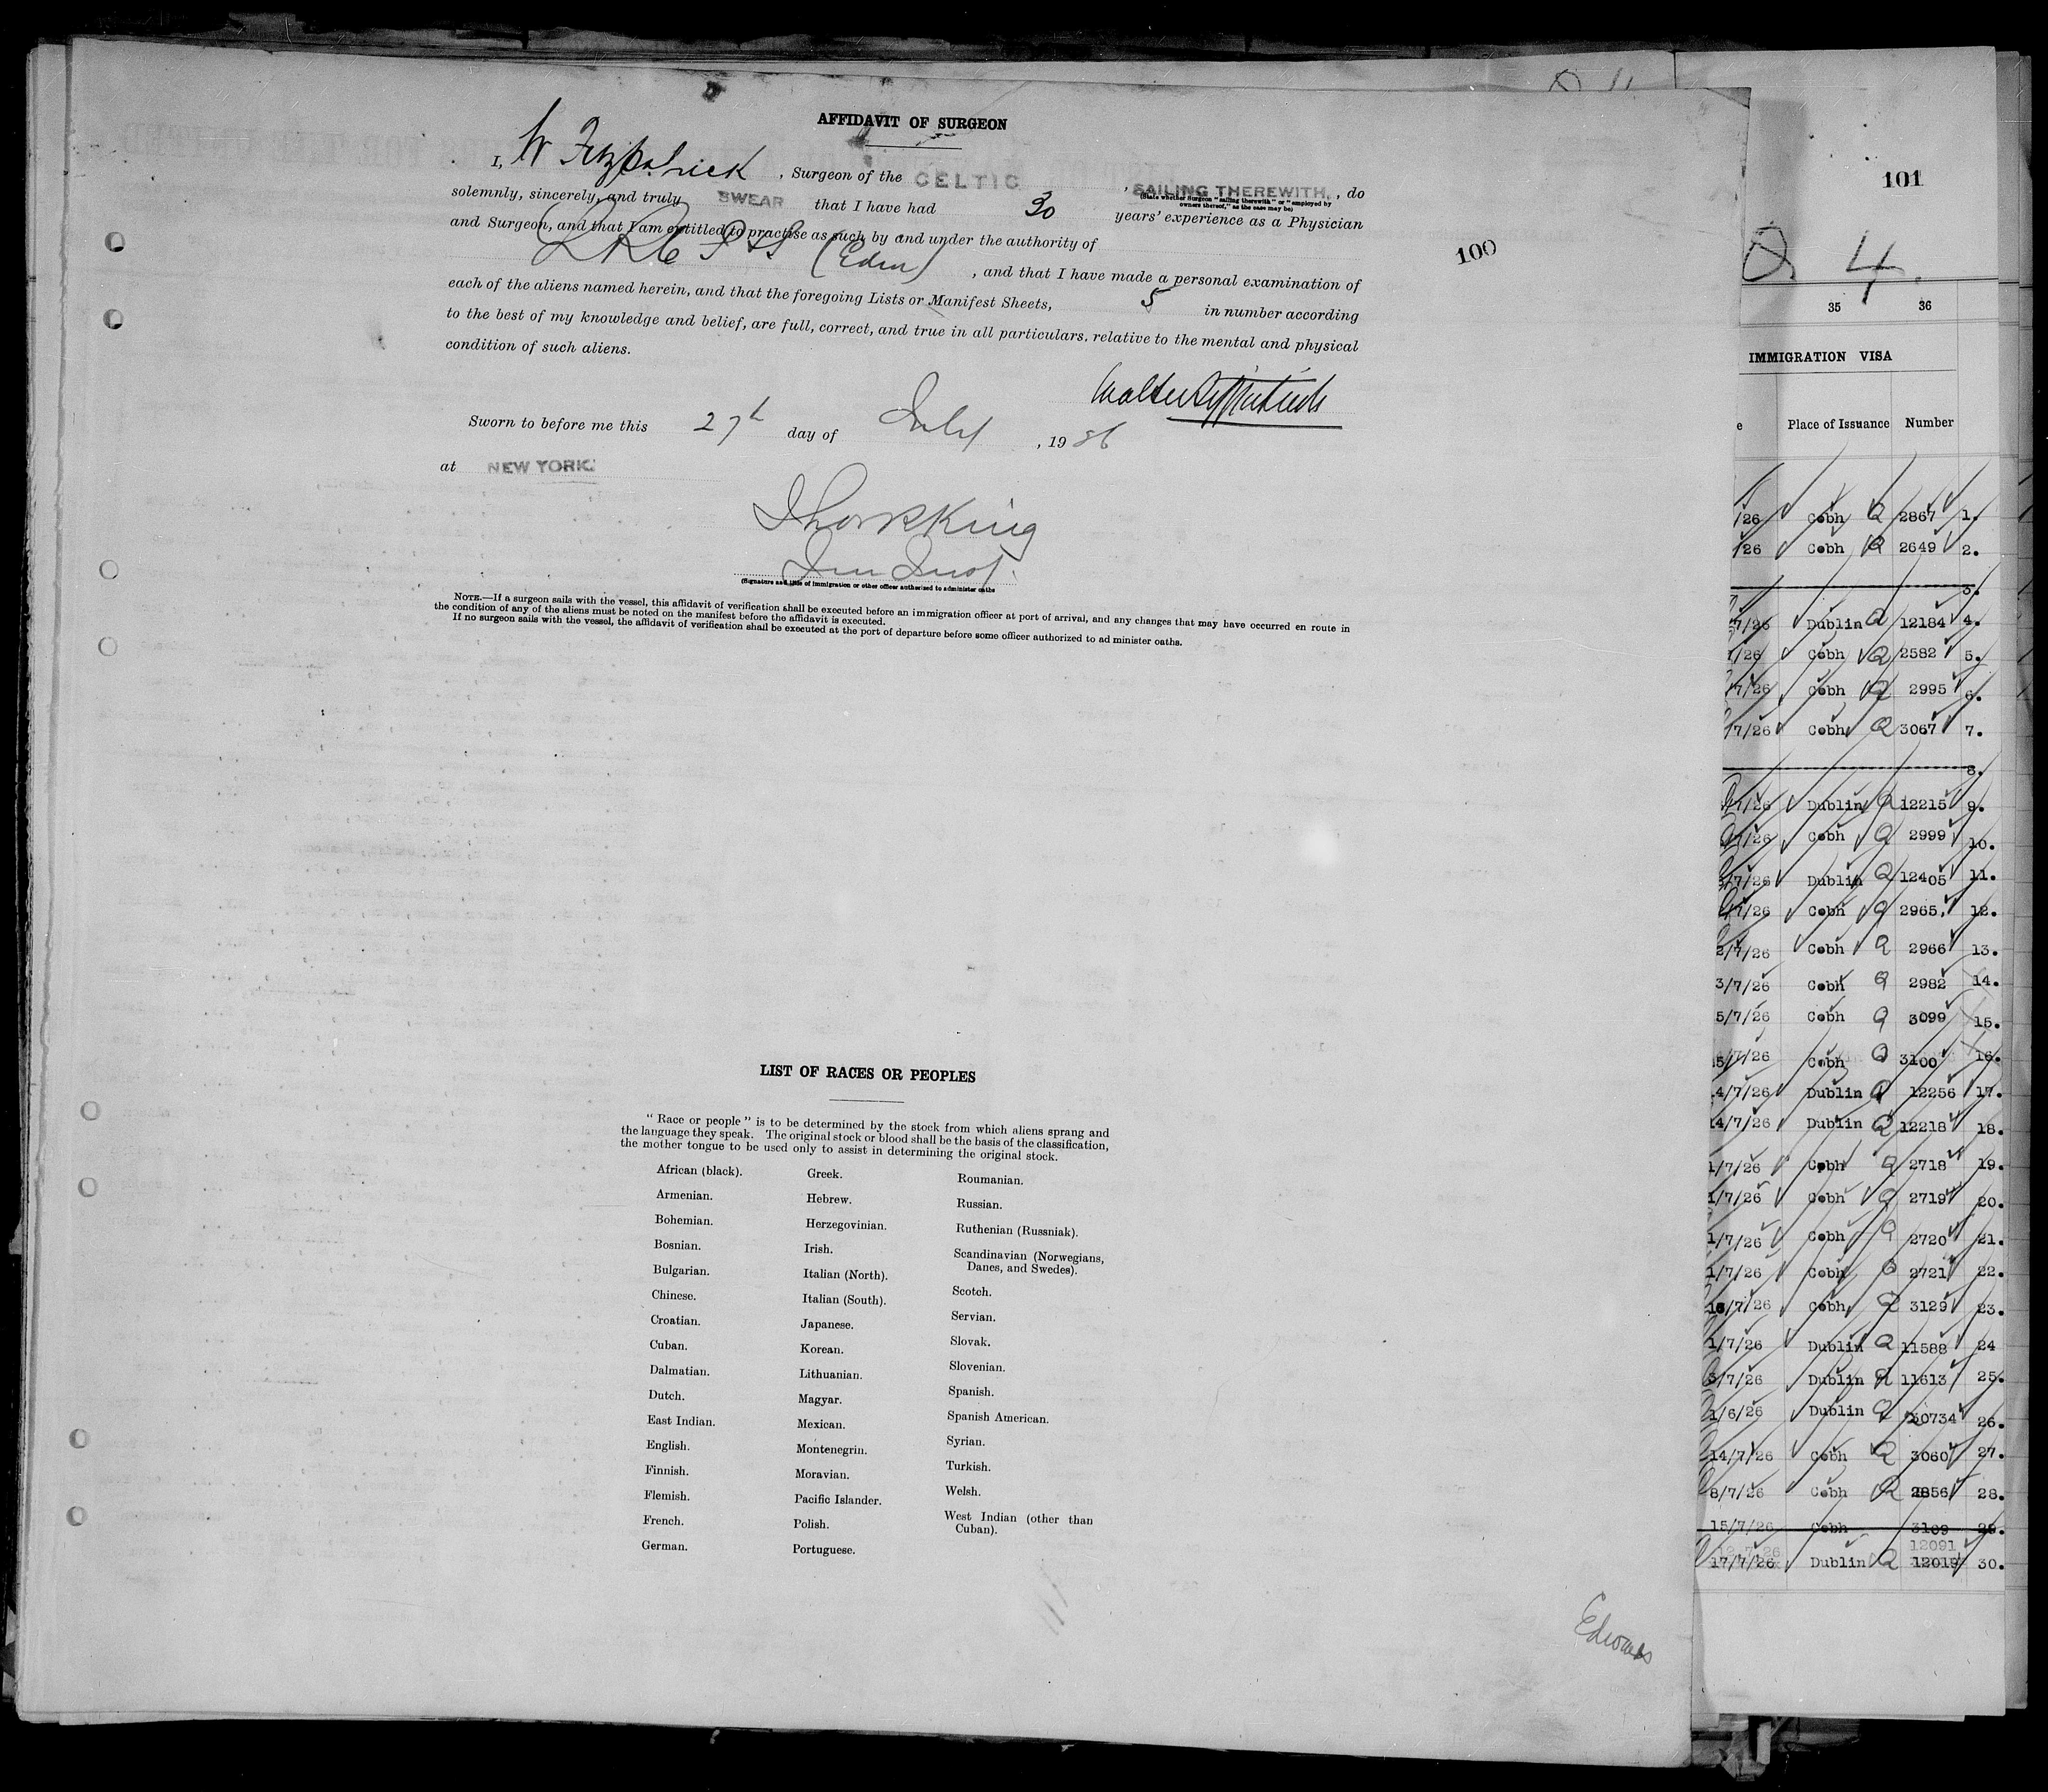 AFFIDAVIT OF SURGEON
I, W Fitzpatrick, Surgeon of the CELTIC, SAILING THEREWITH, do
(State whether Surgeon "sailing therewith" or "employed by owners thereof," as the case may be)
solemnly, sincerely, and truly SWEAR that I have had 30 years' experience as a Physician
and Surgeon, and that I am entitled to practise as such by and under the authority of
(Edin), and that I have made a personal examination of
each of the aliens named herein, and that the foregoing Lists or Manifest Sheets, 5 in number according
to the best of my knowledge and belief, are full, correct, and true in all particulars, relative to the mental and physical
condition of such aliens.
Walter Fitzpatrick
Sworn to before me this 27th day of July, 19
at NEW YORK
King
Imm Insp.
(Signature and title of immigration or other officer authorized to administer oaths
NOTE.—If a surgeon sails with the vessel, this affidavit of verification shall be executed before an immigration officer at port of arrival, and any changes that may have occurred en route in
the condition of any of the aliens must be noted on the manifest before the affidavit is executed.
If no surgeon sails with the vessel, the affidavit of verification shall be executed at the port of departure before some officer authorized to ad minister oaths.
100
LIST OF RACES OR PEOPLES
"Race or people" is to be determined by the stock from which aliens sprang and
the language they speak. The original stock or blood shall be the basis of the classification,
the mother tongue to be used only to assist in determining the original stock.
African (black).
Armenian.
Bohemian.
Bosnian.
Bulgarian.
Chinese.
Croatian.
Cuban.
Dalmatian.
Dutch.
East Indian.
English.
Finnish.
Flemish.
French.
German.
Greek.
Hebrew.
Herzegovinian.
Irish.
Italian (North).
Italian (South).
Japanese.
Korean.
Lithuanian.
Magyar.
Mexican.
Montenegrin.
Moravian.
Pacific Islander.
Polish.
Portuguese.
Roumanian.
Russian.
Ruthenian (Russniak).
Scandinavian (Norwegians,
Danes, and Swedes).
Scotch.
Servian.
Slovak.
Slovenian.
Spanish.
Spanish American.
Syrian.
Turkish.
Welsh.
West Indian (other than
Cuban).
101
4
35 36
IMMIGRATION VISA
e Place of Issuance Number
/26 Cobh Q 2867 1.
/26 Cobh Q 2649 2.
3.
7/26 Dublin Q 12184 4.
/26 Cobh Q 2582 5.
7/26 Cobh Q 2995 6.
/7/26 Cobh Q 3067 7.
8.
/7/26 Dublin Q 12215 9.
/7/26 Cobh Q 2999 10.
/7/26 Dublin Q 12405 11.
/7/26 Cobh Q 2965 12.
2/7/26 Cobh Q 2966 13.
3/7/26 Cobh Q 2982 14.
5/7/26 Cobh Q 3099 15.
15/7/26 Cobh Q 3100 16.
14/7/26 Dublin Q 12256 17.
14/7/26 Dublin Q 12218 18.
1/7/26 Cobh Q 2718 19.
1/7/26 Cobh Q 2719 20.
1/7/26 Cobh Q 2720 21.
1/7/26 Cobh Q 2721 22.
16/7/26 Cobh Q 3129 23.
1/7/26 Dublin Q 11588 24
3/7/26 Dublin Q 11613 25.
1/6/26 Dublin Q 30734 26.
14/7/26 Cobh Q 3060 27.
8/7/26 Cobh Q 2856 28.
15/7/26 Cobh 3109 29.
12091
17/7/26 Dublin Q 12019 30.